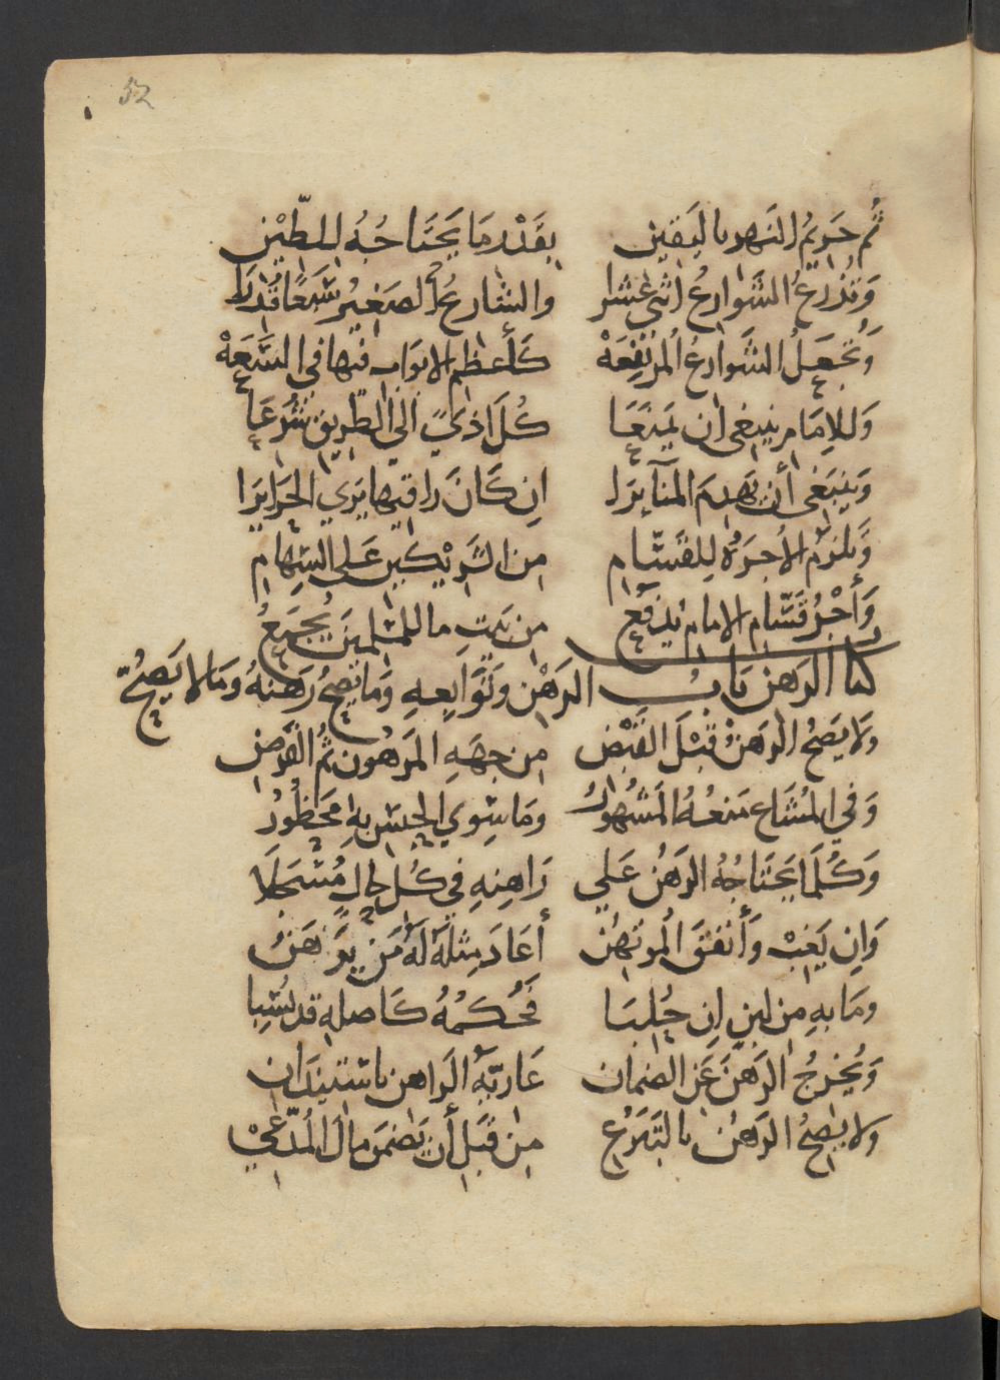 52
ثُم حَرِيمُ النَهرِ باليَقين بقَدْر مَا يَحتَاجُهُ للطِّيْن
وَتُذْرَعُ الشَوارعُ اثنى عَشَر والشارعُ الصَغيْرُ سَبْعًا قُدْرَا
وَتُجعَلُ الشَوارعُ المُرتَفِعَهْ كَأعظم الابوَاب فيها في السَّعَهْ
وَللامَام ينبغى ان يَمنَعَا كُل اذىً الى الطريق شُرعَا
وَينبَغى أن يَهدمَ المنآيرَا ان كَانَ راقيها يَرى الحَرايرَا
وَتلزم الأجرَةُ لِلقسَّام من الشَريْكين عَلى السِهام
وَأجْرُ قسَّام الامام تدفعُ من بَيتِ مال المسلمينَ يُجمَعُ
كتاب الرَهن بابُ الرَهْن وَتَوَابعهِ وَما يصِحُّ رَهنهُ ومَا لا يَصحُّ
ولا يَصَحُّ الرَهنُ قبْلَ القَبْض من جهَهِ المَرهُون ثُم القَرض
وَفي المُشَاع مَنعُهُ المَشهُورُ ومَا سِوي الجنس بهِ مَحظُورُ
وَكُلمَا يَحتَاجُهُ الرَهنُ عَلي رَاهِنهِ في كُل حالٍ مُسْجَلا
وَان يَغبْ وَأنفقَ المُرتهنُ أعَادَ مِثلَهُ لَهُ مَن يَرهَنُ
ومَا بهِ من لبنٍ ان حُلبَا فَحُكمُهُ كَاصلهِ قد نُسِبا
وَيُخرجُ الرَهنَ عَن الضمان عَاريّةُ الرَاهن باستيذان
ولا يصحُ الرَهنُ بالتَبَرُّع من قَبَل أن يَضمَن مالَ المُدّعيْ